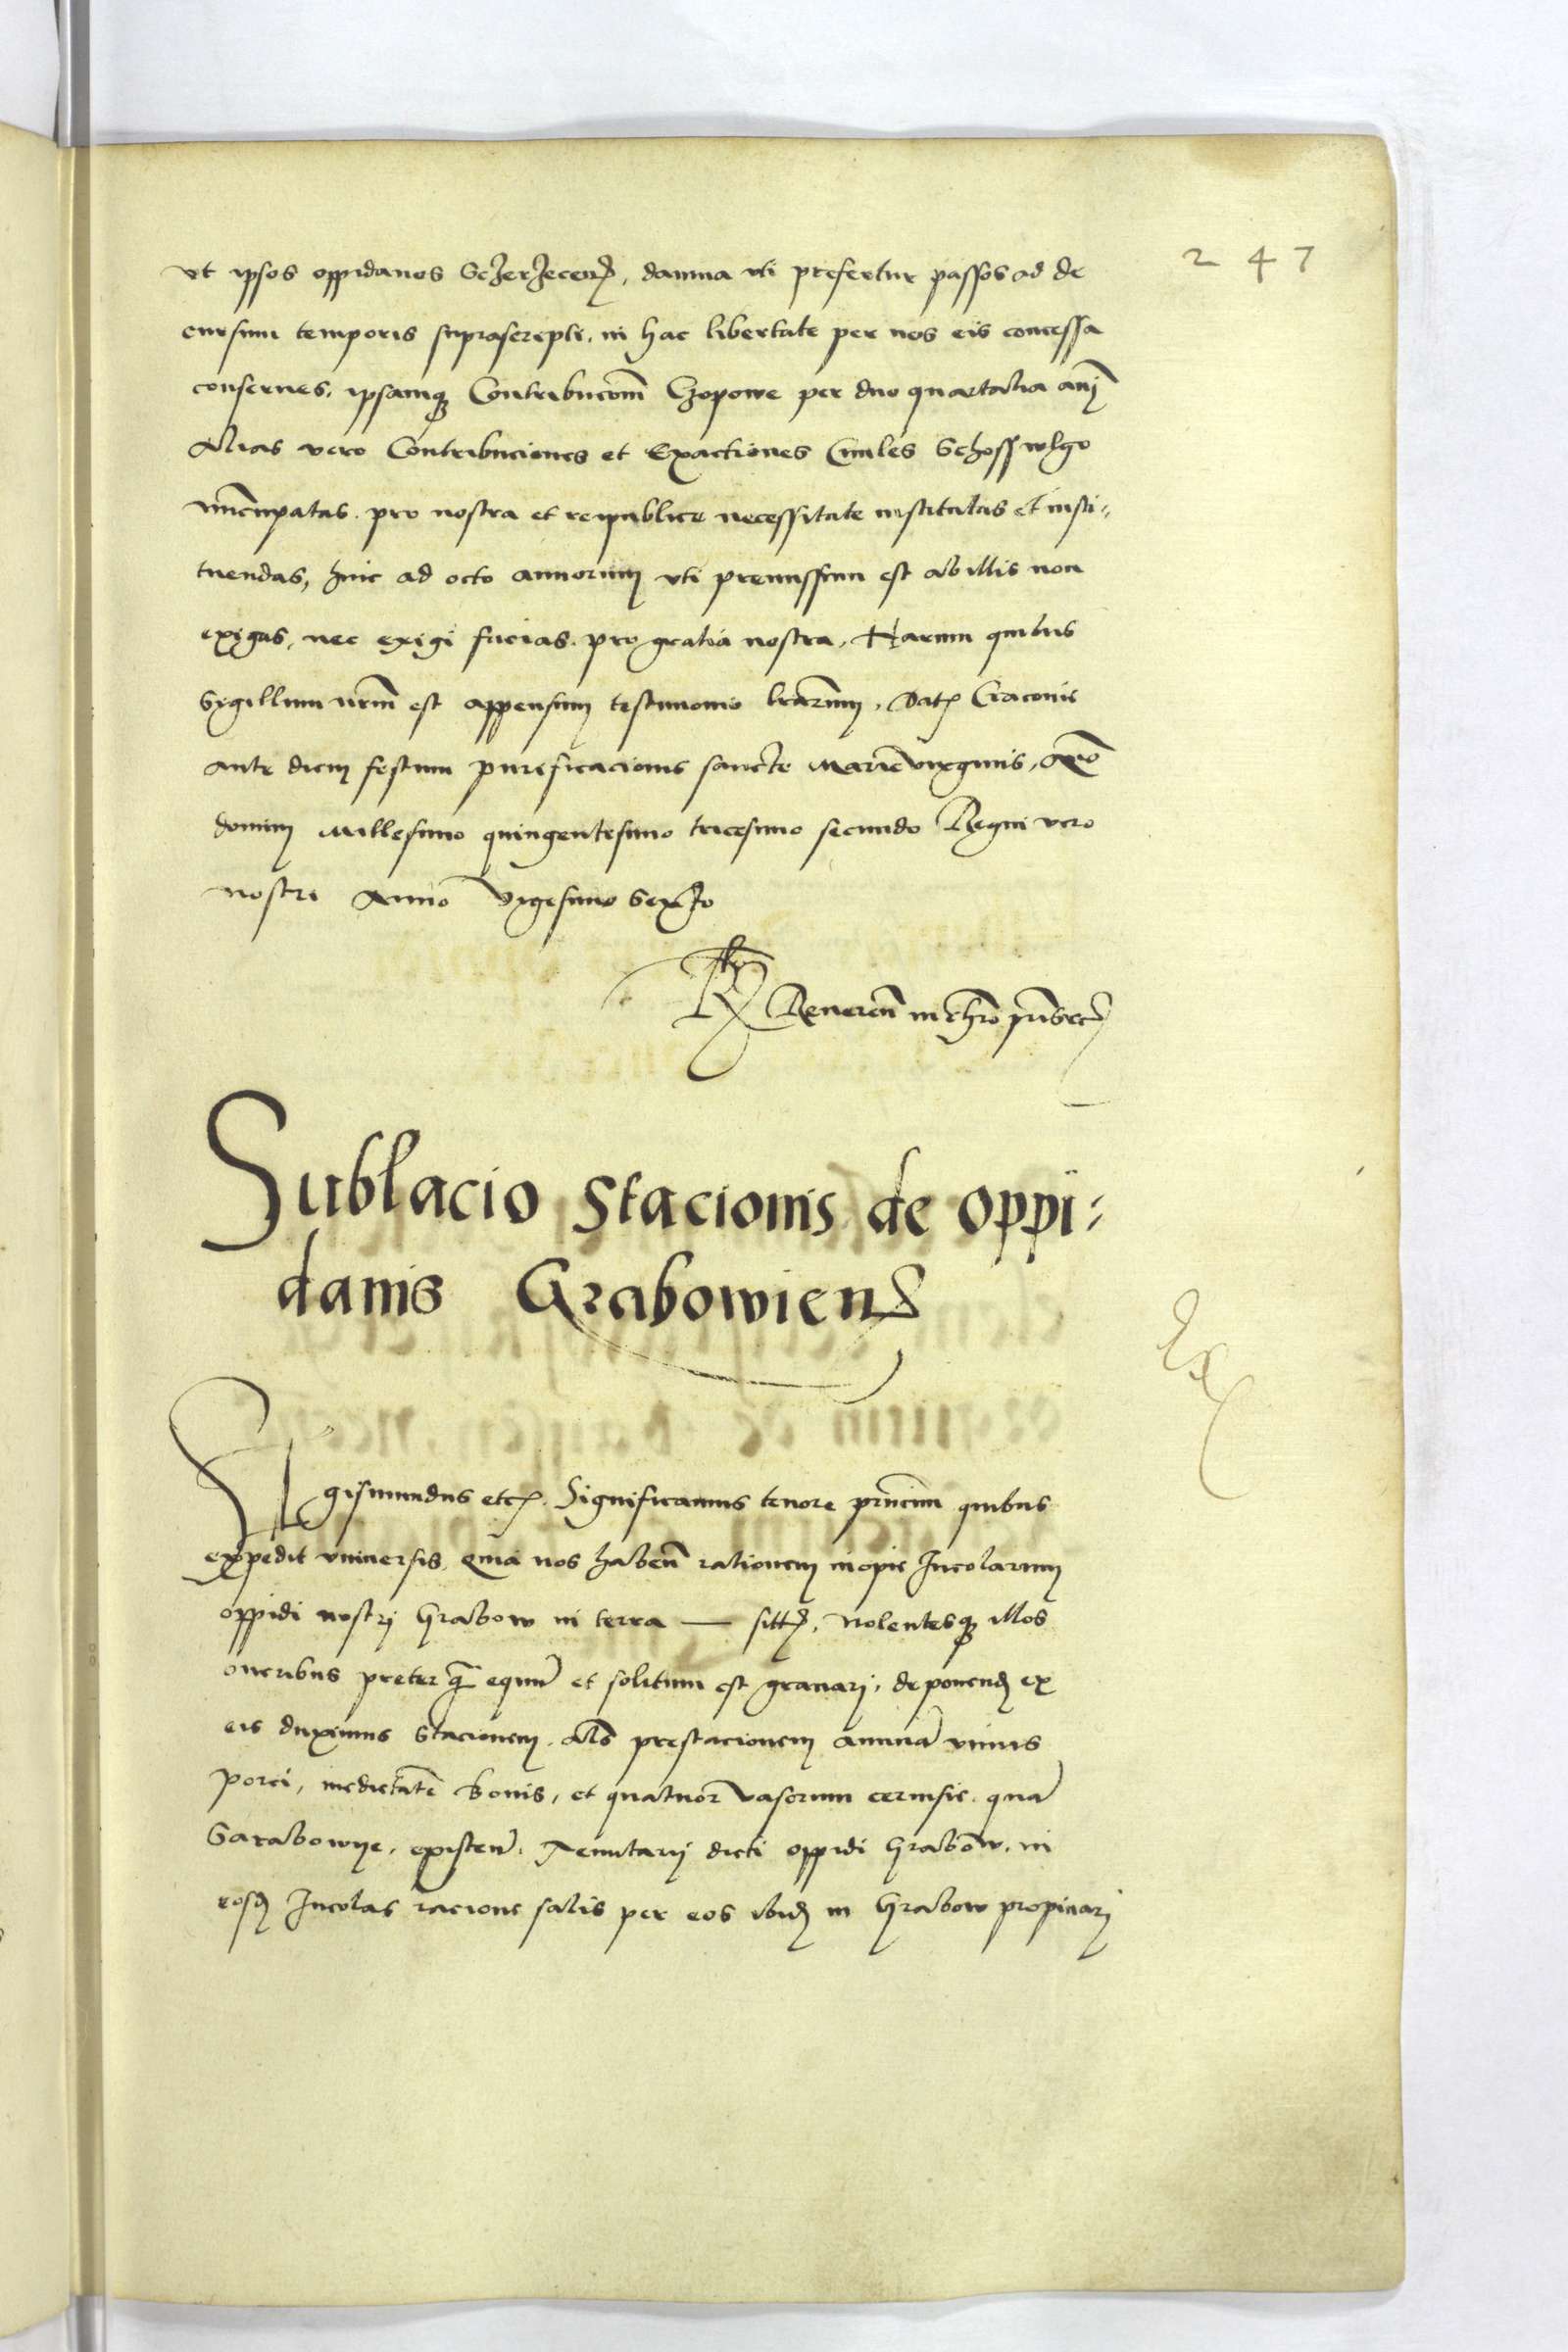 247
vt ipsos oppidanos Sczerzecen̄, damna vti prefertur passos ad de
cursum temporis suprascripti, in hac libertate per nos eis concessa
conserues, ipsamq₃ Contribucōm Czopowe per duo quartalia anni
Alias vero Contribuciones et Exactiones Ciuiles Schoss wlgo
nūcupatas. pro nostra et reipublice necessitate institutas et insti₌
tuendas, hinc ad octo annorum vti premissum est ab illis non
exigas, nec exigi facias. pro gratia nostra. Harum quibus
Sigillum nrm̄ est appensum testimonio lrarum. Dat Cracouie
ante diem festum purificacionis sancte Marie virginis, Anō
domini Millesimo quingentesimo tricesimo secundo Regni vero
nostri Anno vigesimo Sexto
Rᵒ Reueren̄ in chro pris etc
Sublacio Stacionis de oppi₌
danis Grabowien̄
Ex
Sigismundus etc. Significamus tenore pn̄cium quibus
expedit vniuersis, Quia nos haben̄ rationem inopie Incolarum
oppidi nostri Grabow in terra — sitt, Nolentesq₃ illos
oneribus preter q̄ equū et solitum est grauari, deponend ex
eis duximus Stacionem. Als prestacionem annuā vnius
porci, medietatē bouis, et quatuor vasorum ceruisie. quā
Garabowye, existen̄. Tenutarij dicti oppidi Grabow, in
eosd Incolas racione salis per eos ibid in Grabow propinari